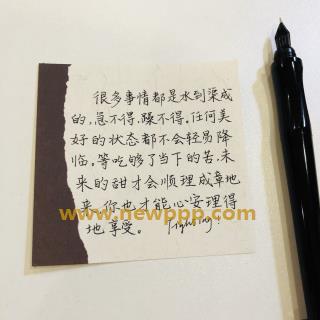 很多事情都是水到渠成
的,急不得,躁不得,任何美
好的状态都不会轻易降
临,等吃够了当下的苦,未
来的甜才会顺理成章地
来,你也才能心安理得
www.newppp.com
地享受。 Fighting!